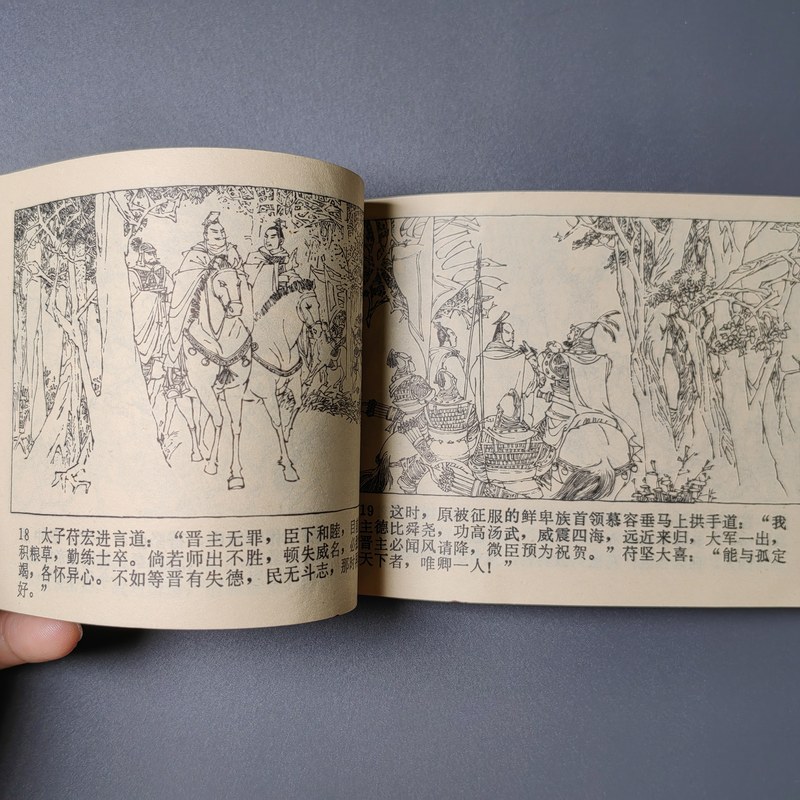 18 太子苻宏进言道:“晋主无罪,臣下和睦,且
积粮草,勤练士卒。倘若师出不胜,顿失威名,
竭,各怀异心。不如等晋有失德,民无斗志,那时
好。”
19 这时,原被征服的鲜卑族首领慕容垂马上拱手道:“我
主德比舜尧,功高汤武,威震四海,远近来归,大军一出,
晋主必闻风请降,微臣预为祝贺。”苻坚大喜:“能与孤定
天下者,唯卿一人!”